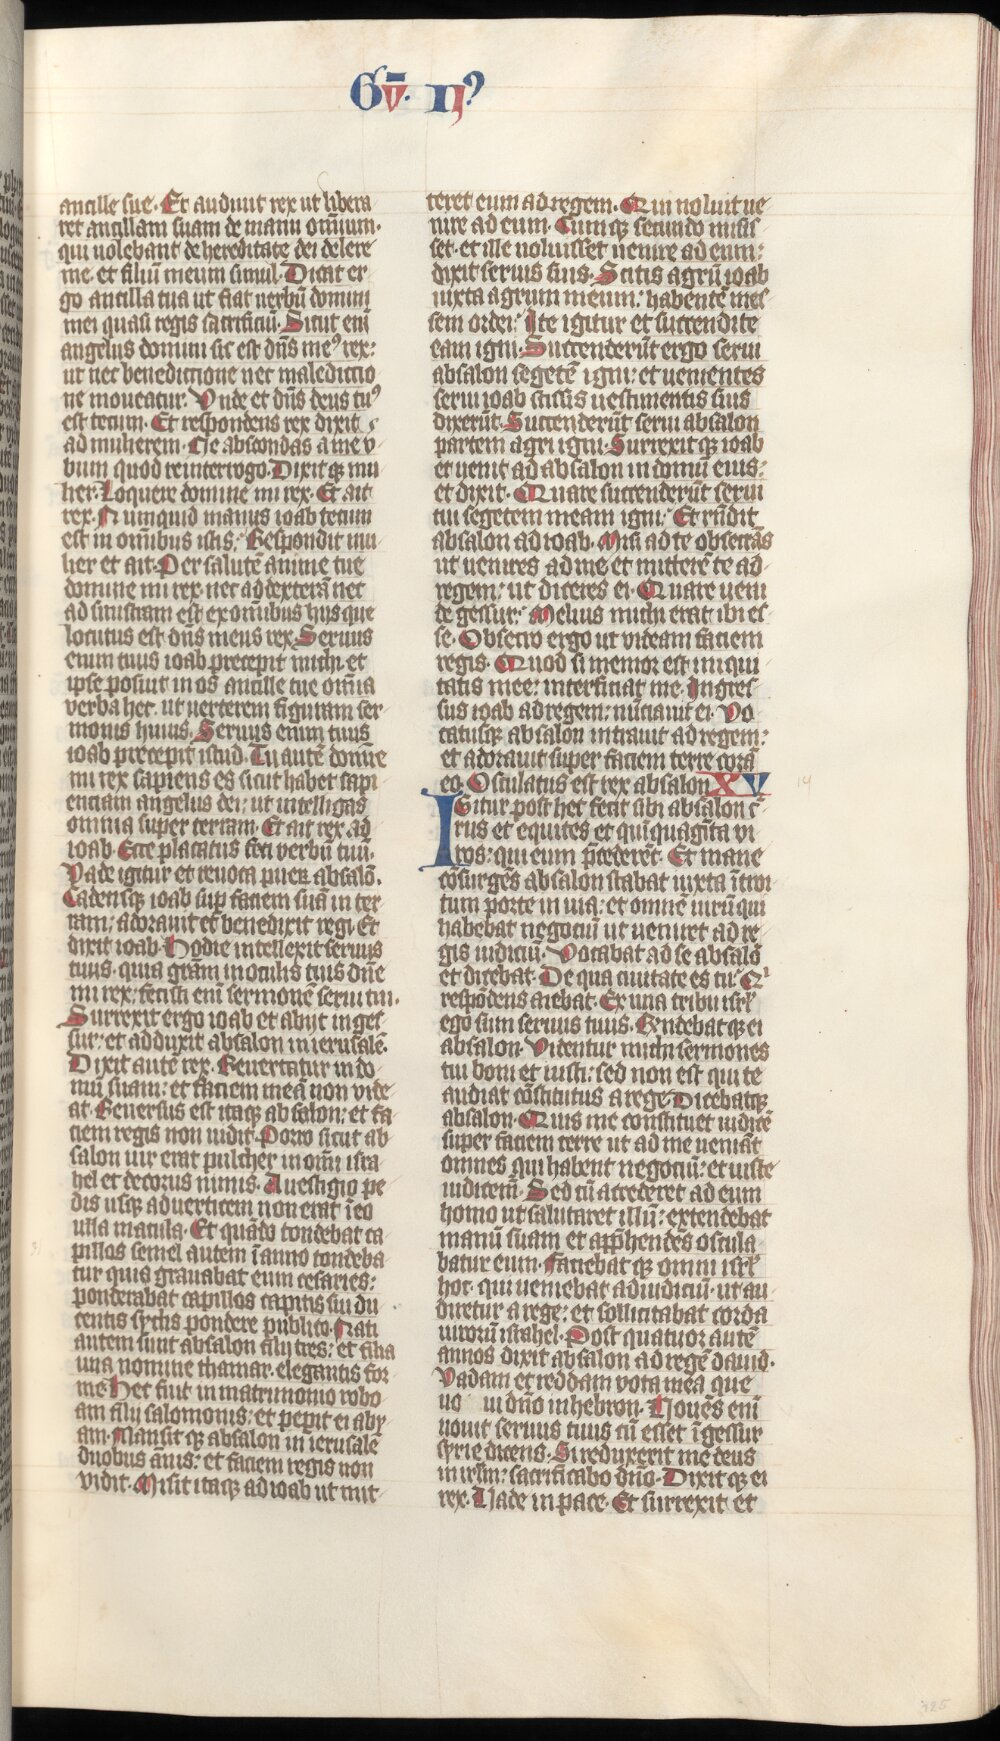 Gū. IJꝰ
ancille sue. Et audiuit rex ut libera
ret ancillam suam de manu omnium.
qui uolebant de hereditate dei delere
me. et filiū meum simul. Dicat er
go ancilla tua ut fiat uerbū domini
mei quasi regis sacrificiū. Sicut enī
angelus domini sic est dn̄s meꝰ rex:
ut nec benedictione nec maledictio
ne moueatur. Vnde et dn̄s deus tuꝰ
est tecum. Et respondens rex dixit
ad mulierem. Ne abscondas a me v
bum quod te interrogo. Dixitqꝫ mu
lier. Loquere domine mi rex. Et ait
rex. Numquid manus ioab tecum
est in omībus istis. Respondit mu
lier et ait. Per salutē anime tue
domine mi rex. nec ad dexterā nec
ad sinistram est ex omībus hijs que
locutus est dn̄s meus rex. Seruus
enim tuus ioab precepit michi et
ipse posuit in os ancille tue omīa
verba hec. ut uerterem figuram ser
monis huius. Seruus enim tuus
ioab precepit istud. Tu autē domīe
mi rex sapiens es sicut habet sapi
enciam angelus dei: ut intelligas
omnia super terram. Et ait rex ad
ioab. Ecce placatus feci verbū tuū.
Vade igitur et reuoca pueꝝ absalō.
Cadensqꝫ ioab sup faciem suā in ter
ram: adorauit et benedixit regi. Et
dixit ioab. Hodie intellexit seruus
tuus. quia grām in oculis tuis dn̄e
mi rex: fecisti enī sermonē serui tui.
Surrexit ergo ioab et abijt in ges
sur: et adduxit absalon in ierusalē.
Dixit autē rex. Reuertatur in do
mū suam: et faciem meā non vide
at. Reuersus est itaqꝫ absalon: et fa
ciem regis non uidit. Porro sicut ab
salon uir erat pulcher in omī isra
hel et decorus nimis. A uestigio pe
dis usqꝫ ad verticem non erat ī eo
ulla macula. Et quādo tondebat ca
pillos semel autem ī anno tondeba
tur quia grauabat eum cesaries:
ponderabat capillos capitis sui du
centis syclis pondere publico. Nati
autem sunt absalon filij tres: et filia
una nomine thamar. elegantis for
me. Hec fuit in matrimonio robo
am filij salomonis: et pepit ei aby
am. Mansitqꝫ absalon in ierusalē
duobus ānis: et faciem regis non
vidit. Misit itaqꝫ ad ioab ut mit
teret eum ad regem. Qui noluit ue
nire ad eum. Cumqꝫ secundo misis
set. et ille noluisset uenire ad eum:
dixit seruis suis. Scitis agrū ioab
iuxta agrum meum: habentē mes
sem ordei: Ite igitur et succendite
eam igni. Succenderūt ergo serui
absalon segetē igni: et uenientes
serui ioab scissis uestimentis suis
dixerūt. Succenderūt serui absalon
partem agri igni. Surrexitqꝫ ioab
et uenit ad absalon in domū eius:
et dixit. Quare succenderūt serui
tui segetem meam igni. Et rn̄dit
absalon ad ioab. Misi ad te obsecrās
ut venires ad me et mitterē te ad
regem: ut diceres ei. Quare ueni
de gessur: Melius michi erat ibi es
se. Obsecro ergo ut videam faciem
regis. Quod si memor est iniqui
tatis mee: interficiat me. Ingres
sus ioab ad regem: nūciauit ei. Vo
catusqꝫ absalon intrauit ad regem:
et adorauit super faciem terre corā
eo. Osculatus est rex absalon XV
Igitur post hec fecit sibi absalon c̄
rus et equites et quīquagīta vi
ros: qui eum p̄cederēt. Et mane
cōsurgēs absalon stabat iuxta ītroi
tum porte in uia: et omnē uirū qui
habebat negociū ut ueniret ad re
gis iudiciū. Vocabat ad se absalō
et dicebat. De qua ciuitate es tu: Qⁱ
respōdens aiebat. Ex una tribu isrł
ego sum seruus tuus. Rēndebatqꝫ ei
absalon. Videntur michi sermones
tui boni et iusti: sed non est qui te
audiat cōstitutus a rege. Dicebatqꝫ
absalon. Quis me constituet iudicē
super faciem terre ut ad me ueniāt
omnes qui habent negociū: et iuste
iudicem̄. Sed cū accederet ad eum
homo ut salutaret illū: extendebat
manū suam et appħendēs oscula
batur eum. Faciebatqꝫ omni isrł
hoc. qui ueniebat ad iudiciū. ut au
diretur a rege: et sollicitabat corda
uirorū israhel. Post quatuor autē
annos dixit absalon ad regē dauid.
Vadam et reddam vota mea que
uo ui dn̄o in hebron. Nouēs enī
uouit seruus tuus cū esset ī gessur
syrie dicens. Si reduxerit me deus
in irlm: sacrificabo dn̄o. Dixitqꝫ ei
rex. Vade in pace. Et surrexit et
14
31
325